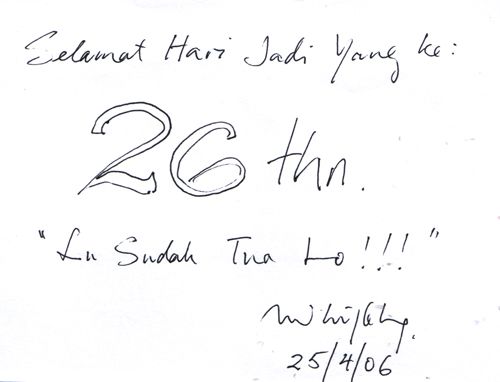 Selamat Hari Jadi Yang ke:
26 thn.
"Lu Sudah Tua Lo!!!"
25/4/06